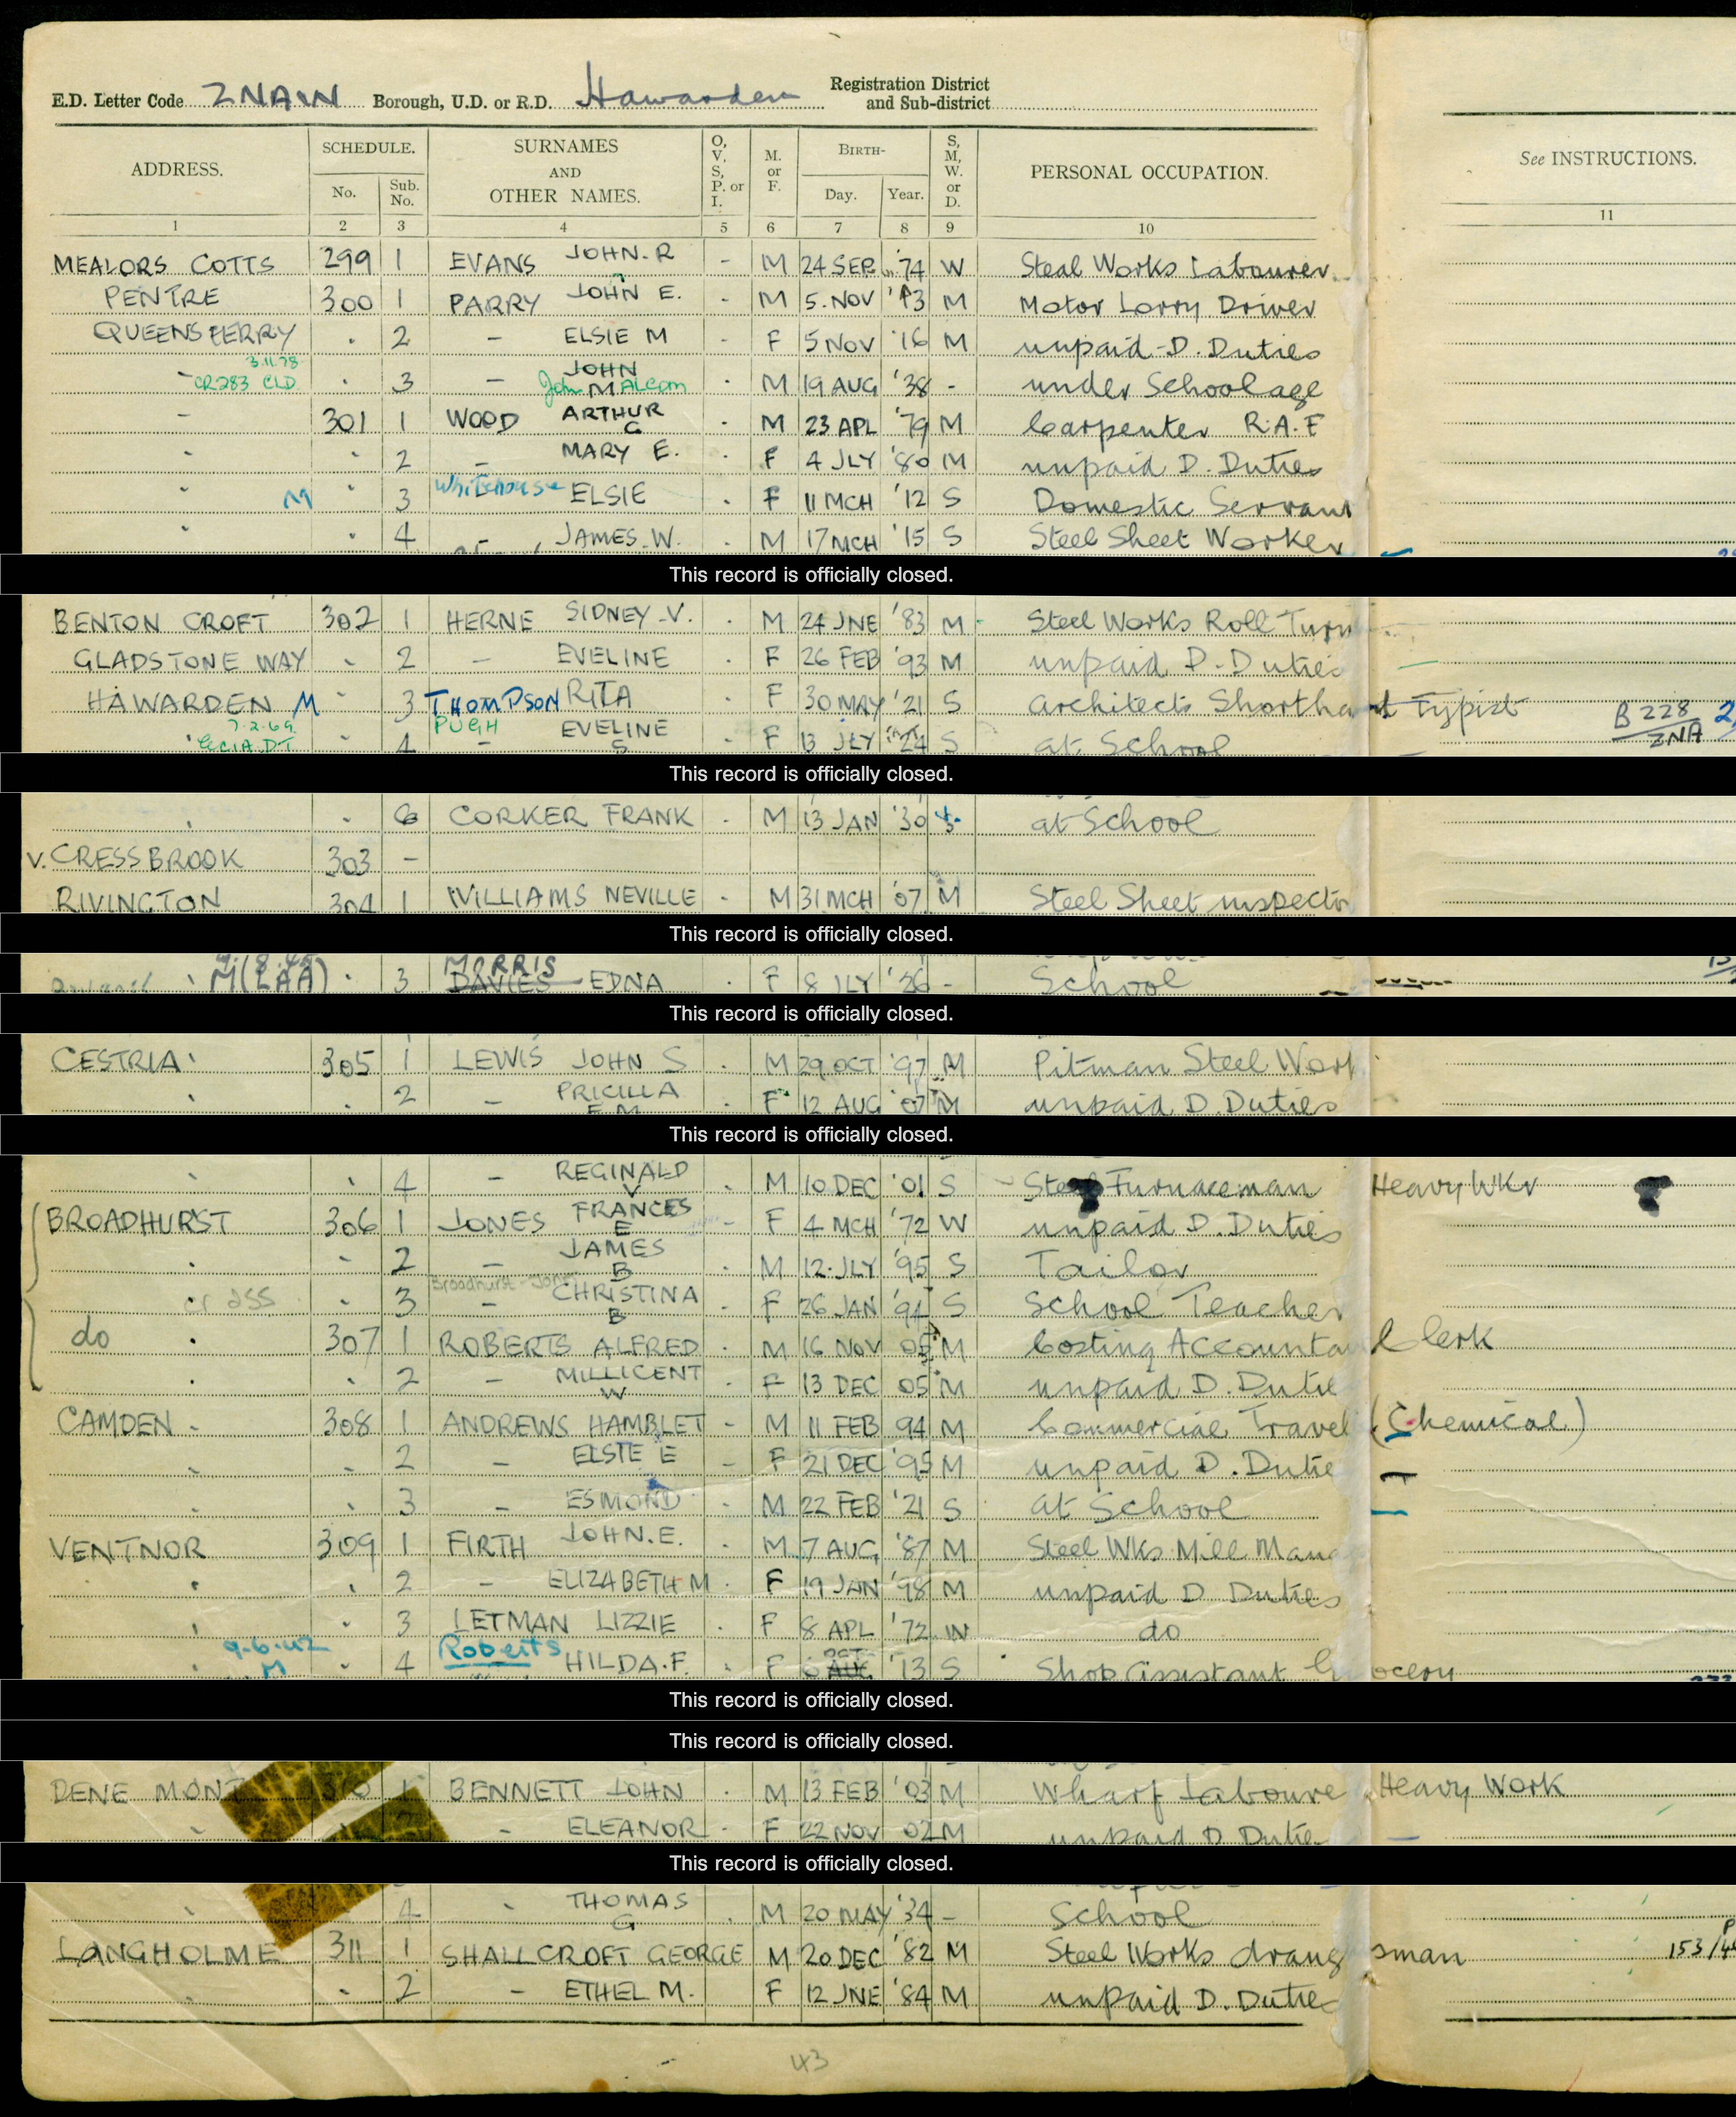 E.D. Letter Code ZNAW Borough, U.D. or R.D. Hawarden Registration District and Sub-district
ADDRESS. SCHEDULE. No. Sub. No. SURNAMES AND OTHER NAMES. O, V, S, P. or I. M. or F. BIRTH- Day. Year. S, M, W. or D. PERSONAL OCCUPATION. See INSTRUCTIONS.
1 2 3 4 5 6 7 8 9 10 11
MEALORS COTTS 299 1 EVANS JOHN.R - M 24 SEP '74 W Steal Works Labourer
PENTRE 300 1 PARRY JOHN E. - M 5.NOV '13 M Motor Lorry Driver
QUEENSFERRY " 2 - ELSIE M F 5 NOV '16 M unpaid D. Duties
3.11.78
CR283 CLD " 3 - JOHN John MALCOM M 19 AUG '38 - under School age
- 301 1 WOOD ARTHUR G M 23 APL '79 M Carpenter R.A.F
" " 2 - MARY E. F 4 JLY '80 M unpaid D. Duties
" M " 3 Whitehouse ELSIE F 11 MCH '12 S Domestic Servant
" " 4 JAMES.W. M 17 MCH '15 S Steel Sheet Worker
This record is officially closed.
BENTON CROFT 302 1 HERNE SIDNEY.V. M 24 JNE '83 M Steel Works Roll Turn
GLADSTONE WAY " 2 - EVELINE F 26 FEB '93 M unpaid D. Duties
HAWARDEN M " 3 THOMPSON RITA F 30 MAY '21 S Architects Shorthand Typist B 228 ZNA
7.2.69
" 4 PUGH - EVELINE S F 13 JLY '24 S at School
This record is officially closed.
" " 6 CORKER FRANK M 13 JAN '30 S at School
V. CRESSBROOK 303 -
RIVINGTON 304 1 WILLIAMS NEVILLE - M 31 MCH '07 M Steel Sheet inspector
This record is officially closed.
" M(LAA) " 3 MORRIS DAVIES EDNA F 8 JLY '26 - School
This record is officially closed.
CESTRIA 305 1 LEWIS JOHN S M 29 OCT '97 M Pitman Steel Work
" " 2 - PRICILLA E.M. F 12 AUG '07 M unpaid D Duties
This record is officially closed.
" " 4 - REGINALD V M 10 DEC '01 S Steel Furnaceman Heavy Wkr
BROADHURST 306 1 JONES FRANCES E - F 4 MCH '72 W unpaid D. Duties
" " 2 - JAMES B M 12.JLY '95 S Tailor
" cr ass " 3 Broadhurst-Jones - CHRISTINA B F 26 JAN '94 S School Teacher
do " 307 1 ROBERTS ALFRED M 16 NOV 05 M Costing Accountant Clerk
" " 2 - MILLICENT W F 13 DEC 05 M unpaid D. Dutie
CAMDEN " 308 1 ANDREWS HAMBLET - M 11 FEB 94 M Commercial Travel (Chemical)
" " 2 - ELSIE E - F 21 DEC '95 M unpaid D. Dutie
" " 3 - ESMOND M 22 FEB '21 S at School
VENTNOR 309 1 FIRTH JOHN.E. M 7 AUG '87 M Steel Wks Mill Mana
" " 2 - ELIZABETH M F 19 JAN '98 M unpaid D Duties
" " 3 LETMAN LIZZIE F 8 APL '72 W do
9.6.42
M " 4 Roberts HILDA.F. F 6 AUG OCT '13 S Shop assistant Grocery
This record is officially closed.
This record is officially closed.
DENE MONT 310 1 BENNETT JOHN M 13 FEB '03 M Wharf Laboure Heavy Work
" 2 - ELEANOR F 22 NOV 02 M unpaid D Dutie
This record is officially closed.
" 4 " THOMAS G M 20 MAY '34 - School
LANGHOLME 311 1 SHALLCROFT GEORGE M 20 DEC '82 M Steel Works draughtsman 153/
" " 2 - ETHEL M. F 12 JNE '84 M unpaid D. Dutie
43